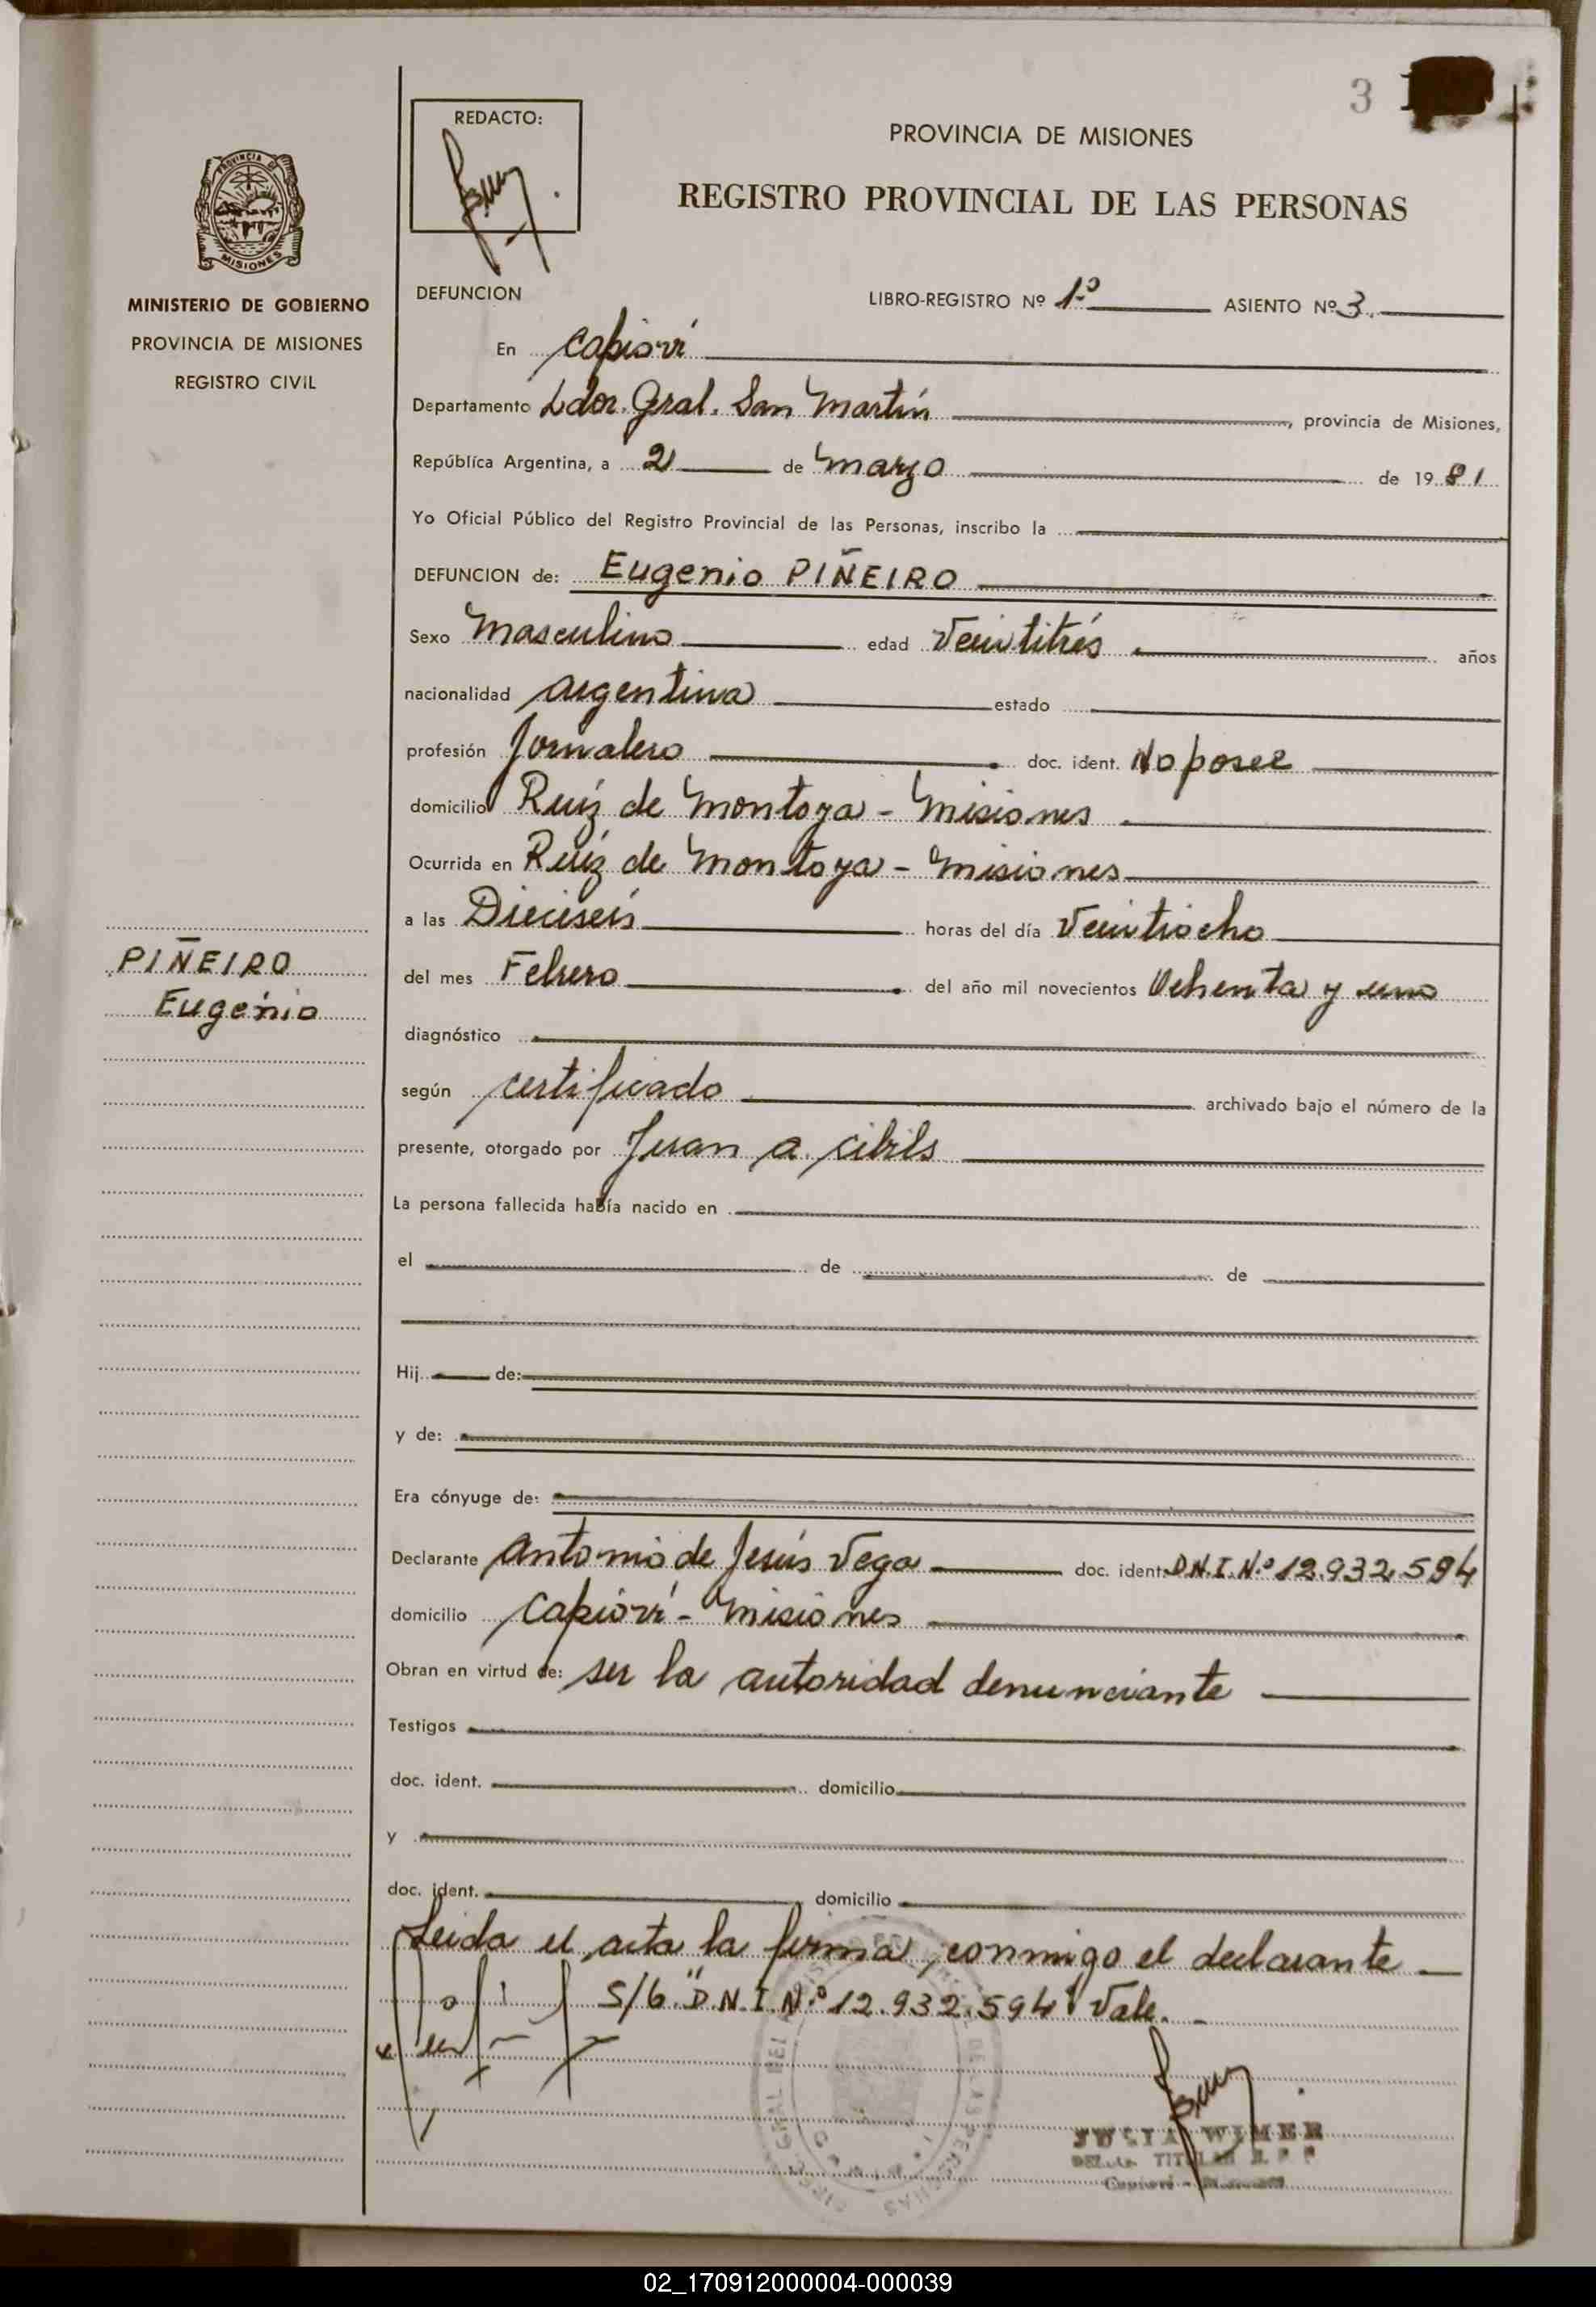 3
REDACTO:
PROVINCIA DE MISIONES
REGISTRO PROVINCIAL DE LAS PERSONAS
PROVINCIA DE
MISIONES
MINISTERIO DE GOBIERNO
PROVINCIA DE MISIONES
REGISTRO CIVIL
DEFUNCION
LIBRO-REGISTRO Nº 1º ASIENTO Nº 3
En Capioví
Departamento Ldor. Gral. San Martín, provincia de Misiones,
República Argentina, a 2 de Marzo de 1981
Yo Oficial Público del Registro Provincial de las Personas, inscribo la
DEFUNCION de: Eugenio PIÑEIRO
Sexo Masculino edad Veintitrés años
nacionalidad argentina estado
profesión Jornalero doc. ident. No posee
domicilio Ruíz de Montoya - Misiones
Ocurrida en Ruíz de Montoya - Misiones
a las Dieciseis horas del día Veintiocho
PIÑEIRO
Eugenio
del mes Febrero del año mil novecientos Ochenta y uno
diagnóstico
según certificado archivado bajo el número de la
presente, otorgado por Juan A. Cibils
La persona fallecida había nacido en
el de de
Hij de:
y de:
Era cónyuge de:
Declarante Antonio de Jesús Vega doc. ident. D.N.I. N.º 12.932.594
domicilio Capioví - Misiones
Obran en virtud de: ser la autoridad denunciante
Testigos
doc. ident. domicilio
y
doc. ident. domicilio
Leida el acta la firma conmigo el declarante
S/b "D.N.I. N.º 12.932.594" Vale.
WIMER
02_170912000004-000039